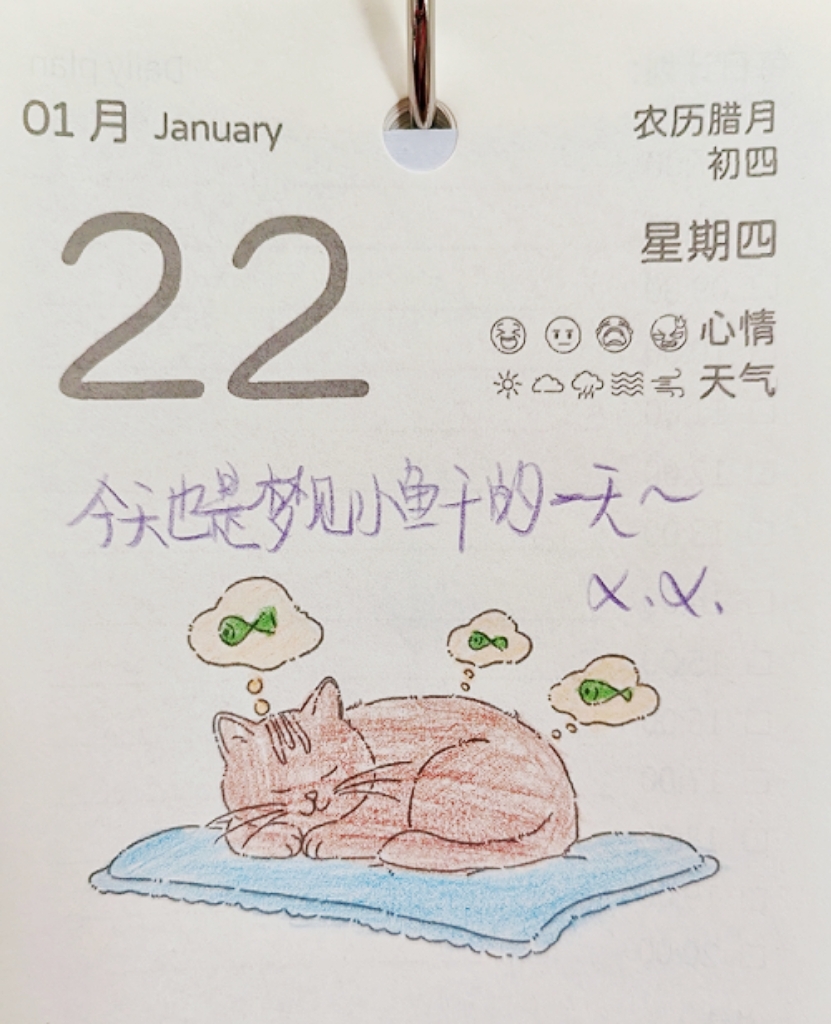 01月 January
农历腊月
初四
22
星期四
心情
天气
今天也是梦见小鱼干的一天～
α.α.